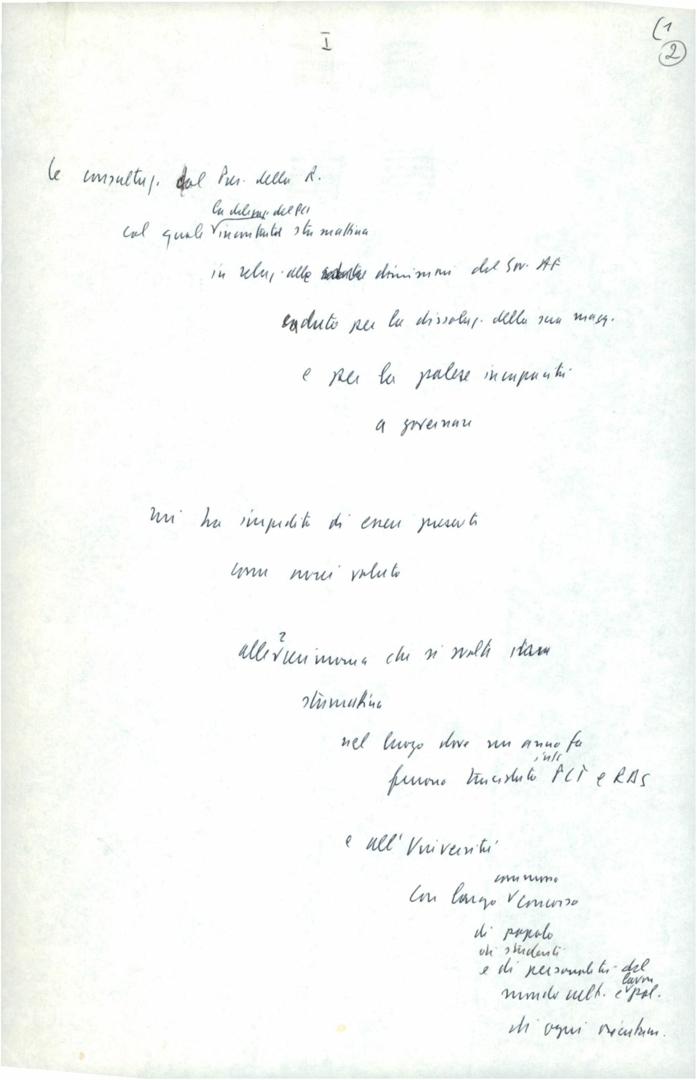 I
(1
2
le consultaz. del Pres. della R.
la delegaz. del PCI
col quale incontratasi stamattina
in relaz. alle dimissioni del Gov. AF
caduto per la dissoluz. della sua magg.
e per la palese incapacità
a governare
mi ha impedito di essere presente
come avrei voluto
alle 2 cerimonia che si svolte
stamattina
nel luogo dove un anno fa
furono trucidati PLT e RDS
e all'Università
commosso
con largo concorso
di popolo
di studenti
e di personalità del
lavoro
mondo cult. e pol.
di ogni orientam.